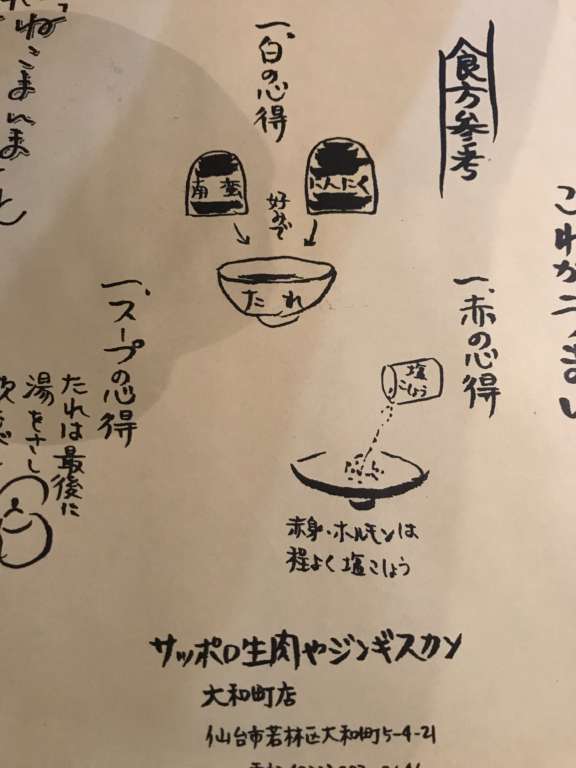 食方参考
これがうまい
一、赤の心得
塩
こしょう
赤身・ホルモンは
程よく塩こしょう
一、白の心得
南蛮
好みで
にんにく
たれ
一、スープの心得
たれは最後に
湯をさし
サッポロ生肉やジンギスカン
大和町店
仙台市若林区大和町5-4-21